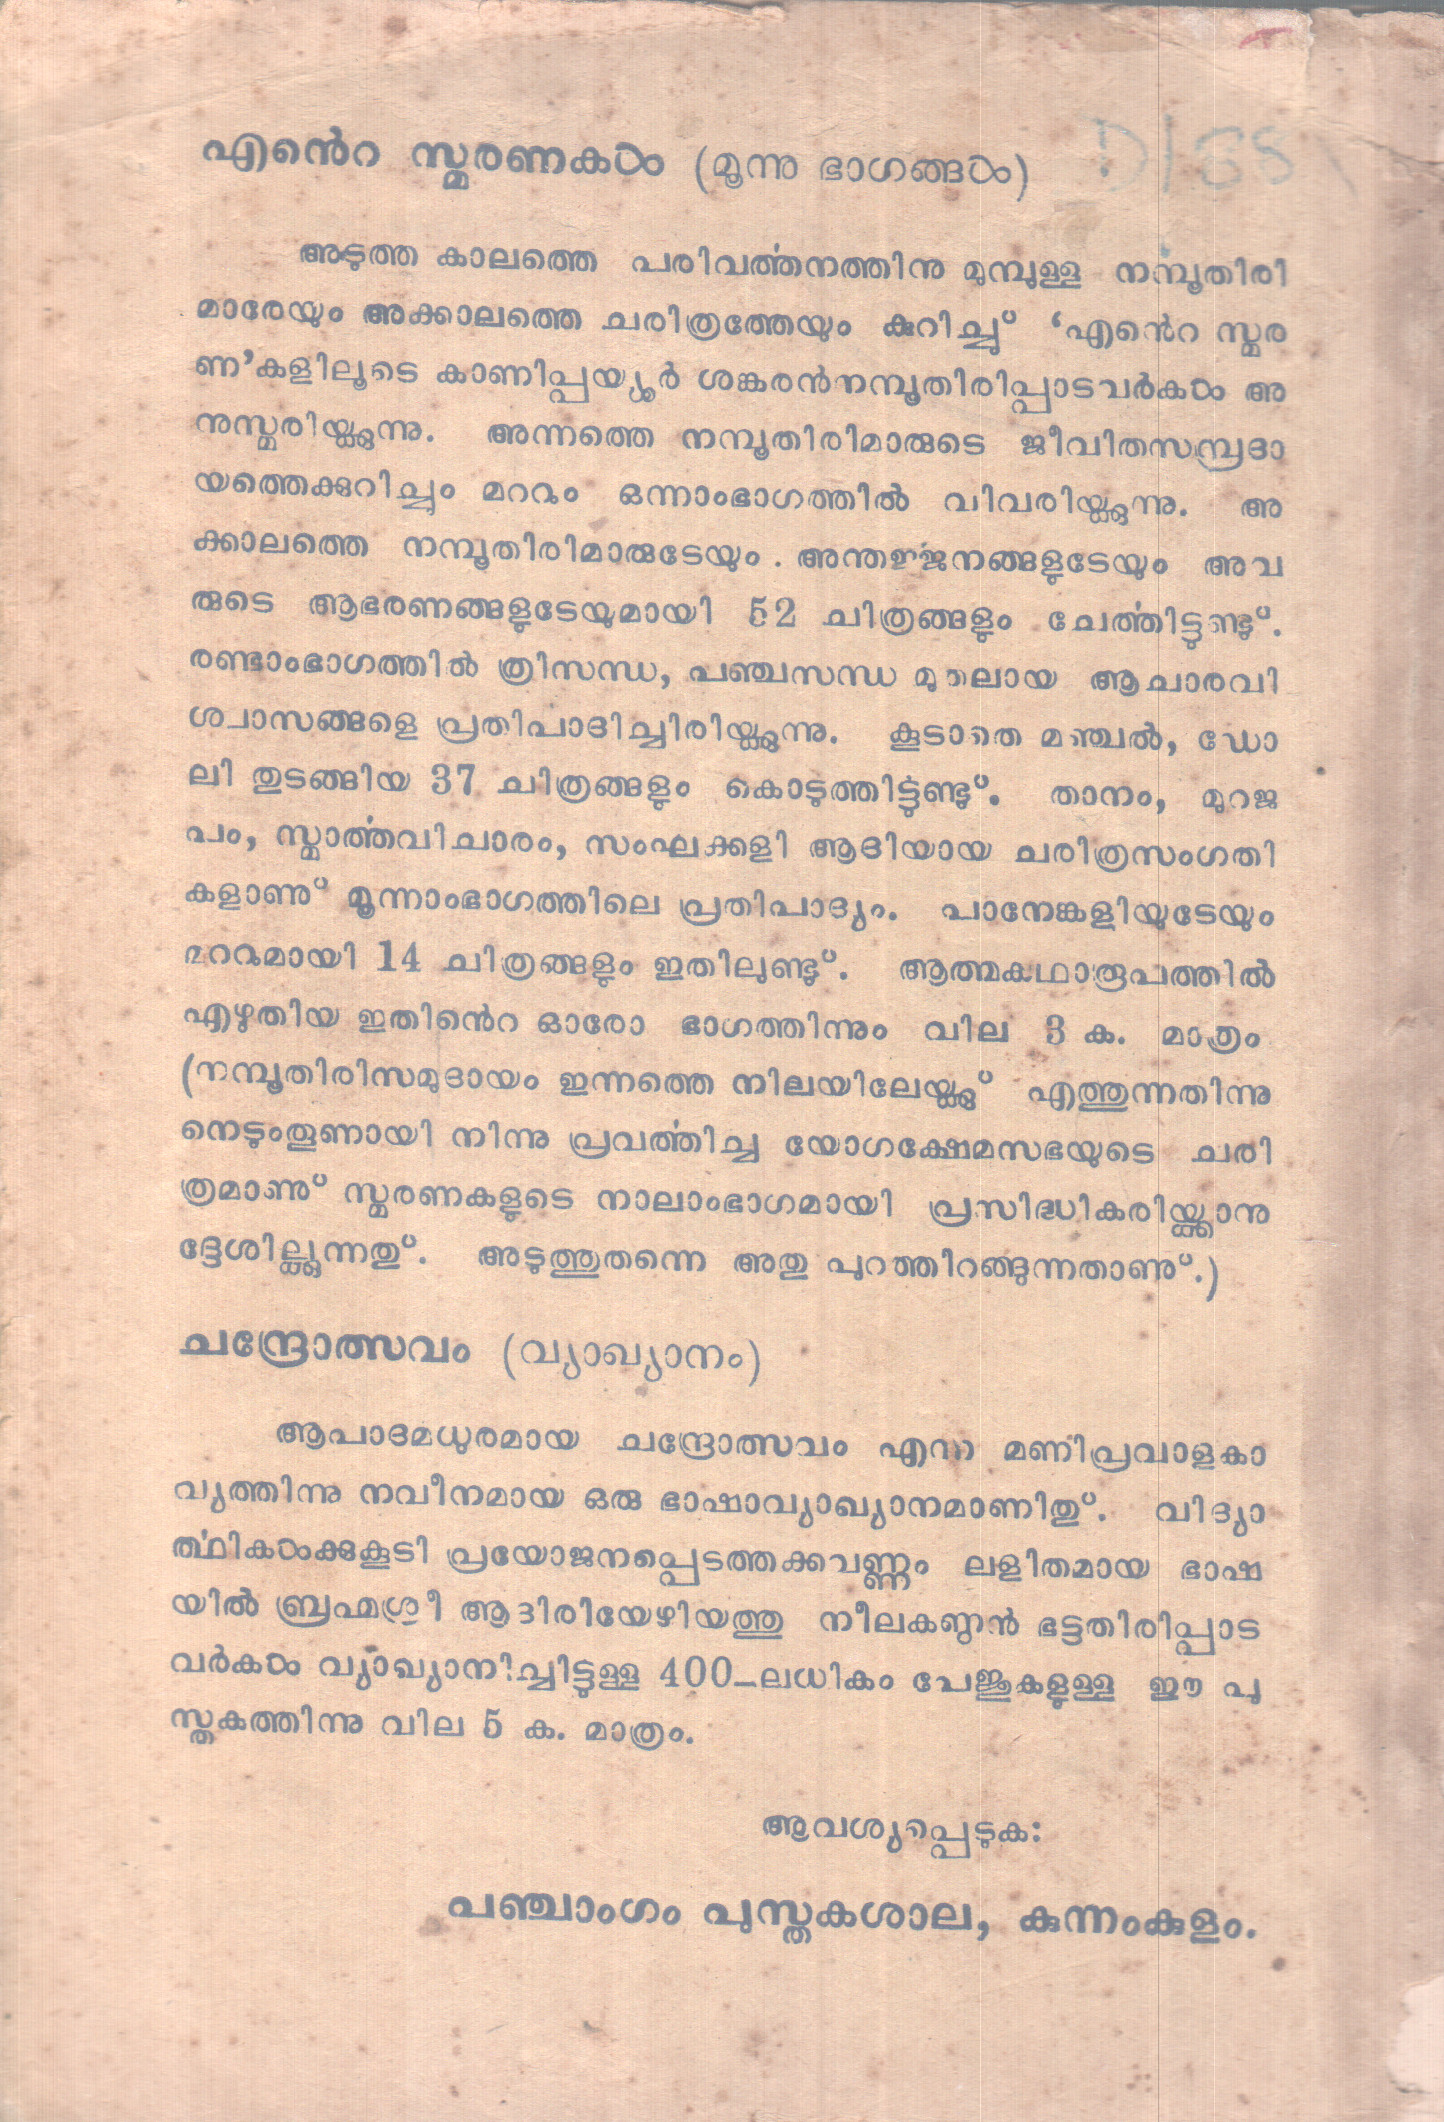 എന്റെ സ്മരണകൾ (മൂന്നു ഭാഗങ്ങൾ)
അടുത്ത കാലത്തെ പരിവൎത്തനത്തിനു മുമ്പുള്ള നമ്പൂതിരി
മാരേയും അക്കാലത്തെ ചരിത്രത്തേയും കുറിച്ചു് ‘എന്റെ സ്മര
ണ’കളിലൂടെ കാണിപ്പയ്യൂർ ശങ്കരൻനമ്പൂതിരിപ്പാടവർകൾ അ
നുസ്മരിയ്ക്കുന്നു. അന്നത്തെ നമ്പൂതിരിമാരുടെ ജീവിതസമ്പ്രദാ
യത്തെക്കുറിച്ചും മററും ഒന്നാംഭാഗത്തിൽ വിവരിയ്ക്കുന്നു. അ
ക്കാലത്തെ നമ്പൂതിരിമാരുടേയും അന്തൎജ്ജനങ്ങളുടേയും അവ
രുടെ ആഭരണങ്ങളുടേയുമായി 52 ചിത്രങ്ങളും ചേൎത്തിട്ടുണ്ടു്.
രണ്ടാംഭാഗത്തിൽ ത്രിസന്ധ, പഞ്ചസന്ധ മുതലായ ആചാരവി
ശ്വാസങ്ങളെ പ്രതിപാദിച്ചിരിയ്ക്കുന്നു. കൂടാതെ മഞ്ചൽ, ഡോ
ലി തുടങ്ങിയ 37 ചിത്രങ്ങളും കൊടുത്തിട്ടുണ്ടു്. താനം, മുറജ
പം, സ്മാൎത്തവിചാരം, സംഘക്കളി ആദിയായ ചരിത്രസംഗതി
കളാണു് മൂന്നാംഭാഗത്തിലെ പ്രതിപാദ്യം. പാനേങ്കളിയുടേയും
മററുമായി 14 ചിത്രങ്ങളും ഇതിലുണ്ടു്. ആത്മകഥാരൂപത്തിൽ
എഴുതിയ ഇതിന്റെ ഓരോ ഭാഗത്തിന്നും വില 3 ക. മാത്രം
(നമ്പൂതിരിസമുദായം ഇന്നത്തെ നിലയിലേയ്ക്കു് എത്തുന്നതിന്നു
നെടുംതൂണായി നിന്നു പ്രവൎത്തിച്ച യോഗക്ഷേമസഭയുടെ ചരി
ത്രമാണു് സ്മരണകളുടെ നാലാംഭാഗമായി പ്രസിദ്ധികരിയ്ക്കാനു
ദ്ദേശില്ക്കുന്നതു്. അടുത്തുതന്നെ അതു പുറത്തിറങ്ങുന്നതാണു്.)
ചന്ദ്രോത്സവം (വ്യാഖ്യാനം)
ആപാദമധുരമായ ചന്ദ്രോത്സവം എന്ന മണിപ്രവാളകാ
വ്യത്തിന്നു നവീനമായ ഒരു ഭാഷാവ്യാഖ്യാനമാണിതു്. വിദ്യാ
ൎത്ഥികൾക്കുകൂടി പ്രയോജനപ്പെടത്തക്കവണ്ണം ലളിതമായ ഭാഷ
യിൽ ബ്രഹ്മശ്രീ ആദിരിയേഴിയത്തു നീലകണ്ഠൻ ഭട്ടതിരിപ്പാട
വർകൾ വ്യാഖ്യാനിച്ചിട്ടുള്ള 400-ലധികം പേജുകളുള്ള ഈ പു
സ്തകത്തിന്നു വില 5 ക. മാത്രം.
ആവശ്യപ്പെടുക:
പഞ്ചാംഗം പുസ്തകശാല, കുന്നംകുളം.